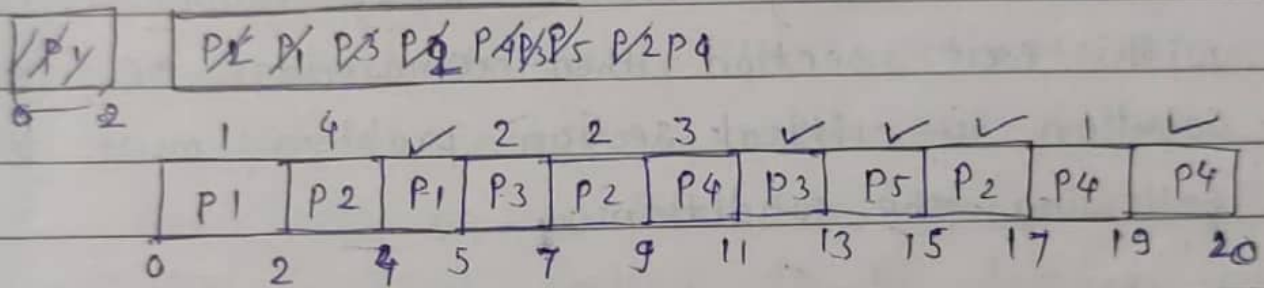 P2 P1 P3 P2 P4 P3 P5 P2 P4
0 2
1 4 ✓ 2 2 3 ✓ ✓ ✓ 1 ✓
P1 P2 P1 P3 P2 P4 P3 P5 P2 P4 P4
0 2 4 5 7 9 11 13 15 17 19 20